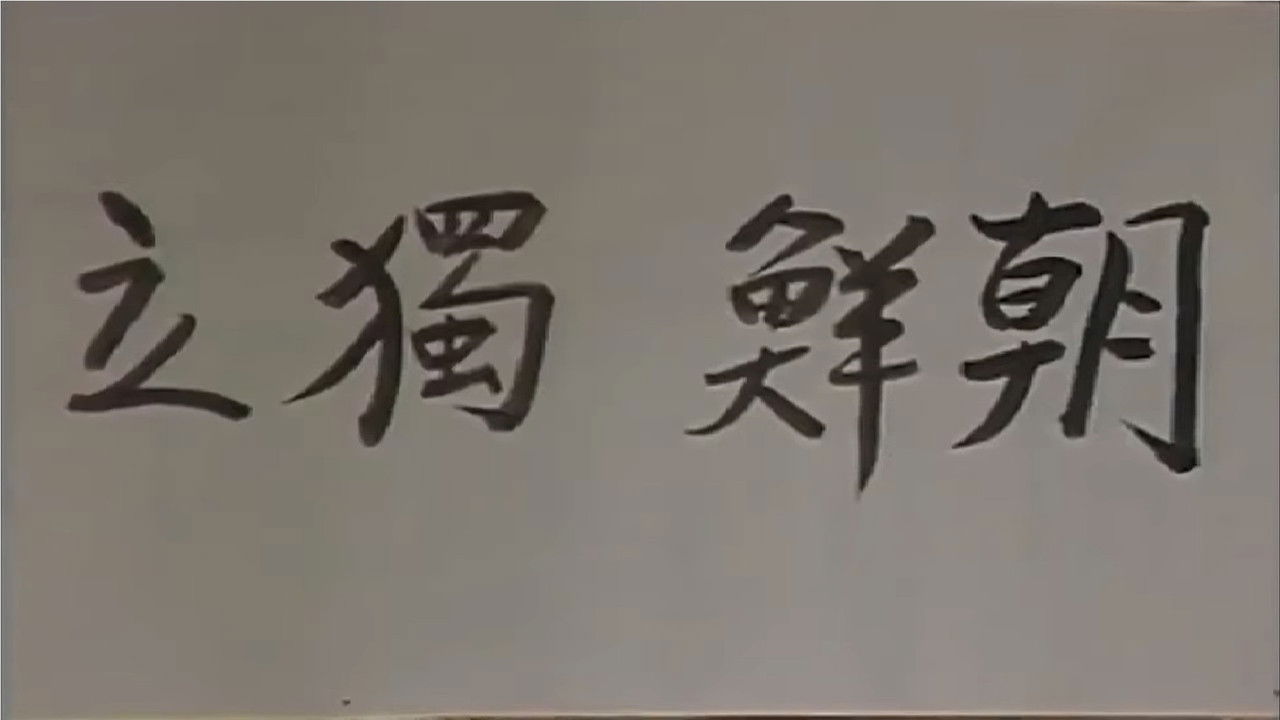 朝鮮 獨立